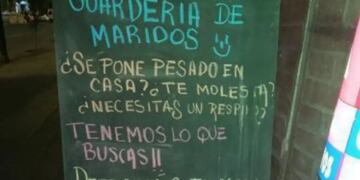 GUARDERIA DE
MARIDOS
¿SE PONE PESADO EN
CASA? ¿TE MOLESTA?
¿NECESITAS UN RESPIRO?
TENEMOS LO QUE
BUSCAS!!